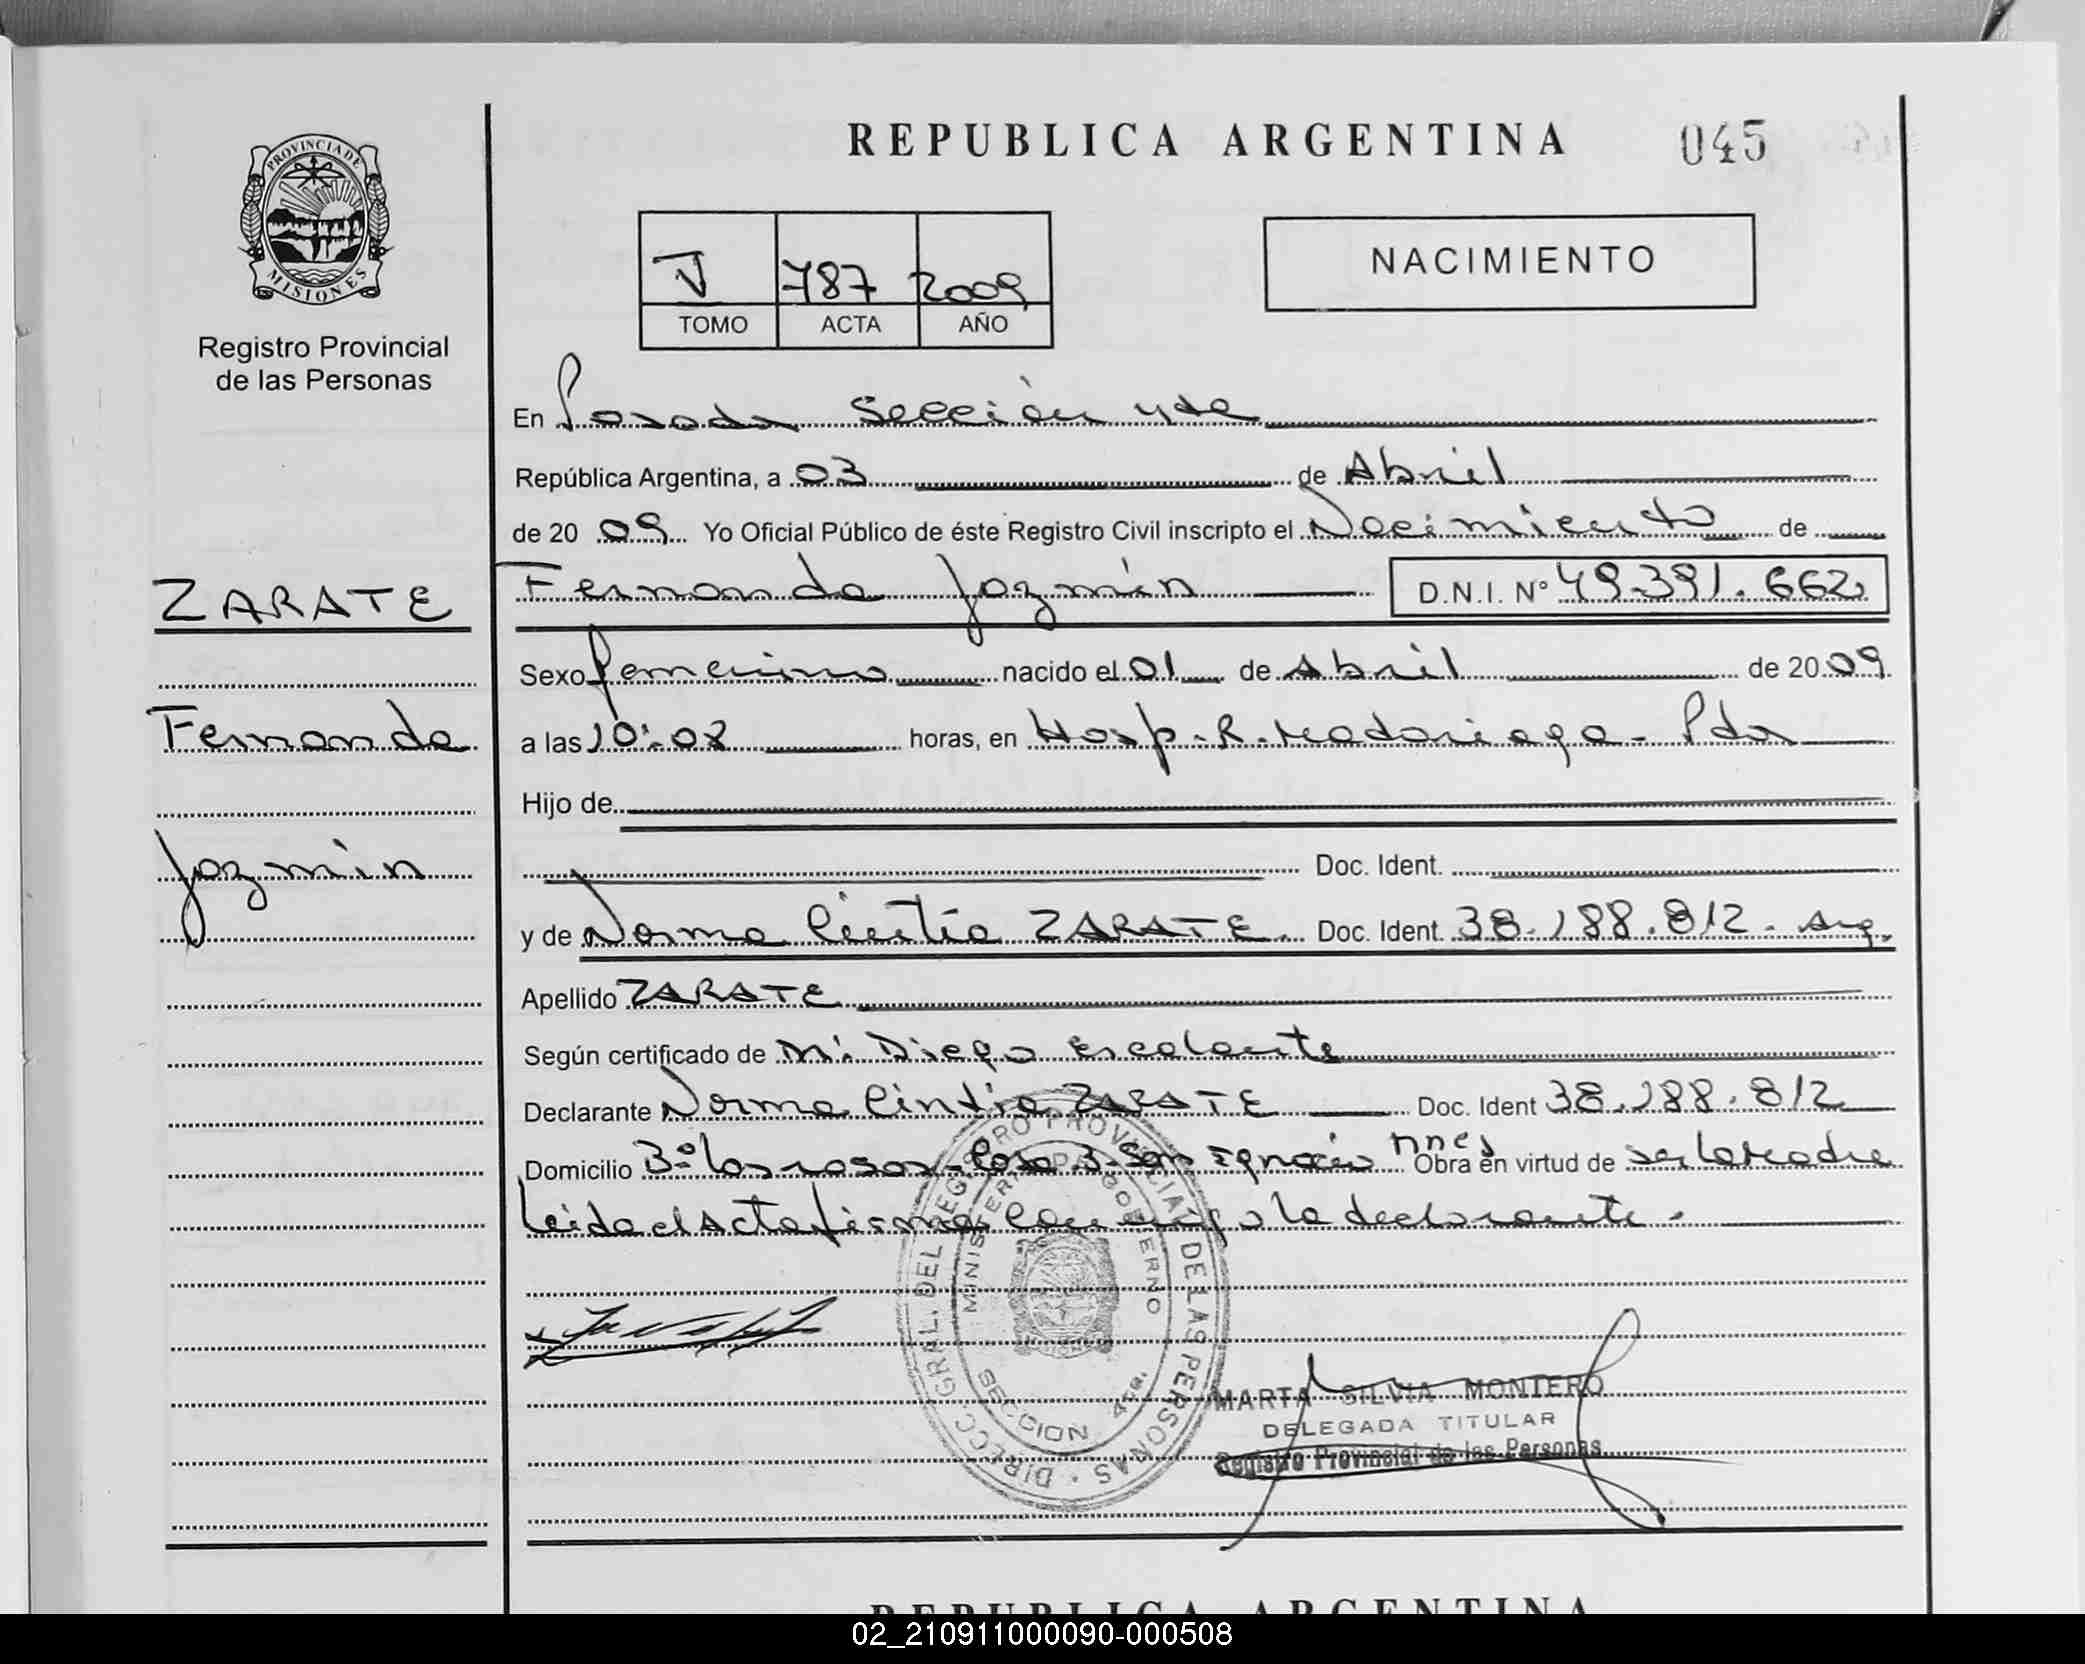 REPUBLICA ARGENTINA 045
PROVINCIA DE
MISIONES
Registro Provincial
de las Personas
V 787 2009
TOMO ACTA AÑO
NACIMIENTO
En Posadas Sección 4ta
República Argentina, a 03 de Abril
de 20 09 Yo Oficial Público de éste Registro Civil inscripto el Nacimiento de
ZARATE
Fernanda Jazmín D.N.I. Nº 49.391.662
Sexo femenino nacido el 01 de Abril de 20 09
Fernanda
a las 10:08 horas, en Hosp. R. Madariaga - Pdas
Hijo de
Jazmín
Doc. Ident.
y de Norma Cintia ZARATE. Doc. Ident. 38.188.812. Arg.
Apellido ZARATE
Según certificado de M. Diego Escalante
Declarante Norma Cintia ZARATE Doc. Ident 38.188.812
Domicilio Bº Las rosas - Casa 3 - San Ignacio Mnes Obra en virtud de ser la Madre
Leida el Acta firma conmigo la declarante.
DIRECC. GRAL. DEL REGISTRO PROVINCIAL DE LAS PERSONAS
MINISTERIO DE GOBIERNO
SECCION 4ta.
MARTA SILVIA MONTERO
DELEGADA TITULAR
Registro Provincial de las Personas
REPUBLICA ARGENTINA
02_210911000090-000508